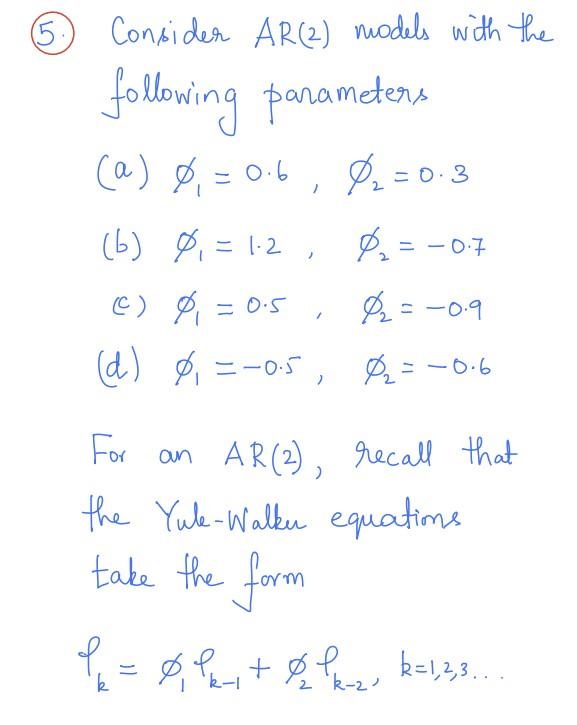 5. Consider AR(2) models with the
following parameters
(a) ∅₁ = 0.6 , ∅₂ = 0.3
(b) ∅₁ = 1.2 , ∅₂ = -0.7
(c) ∅₁ = 0.5 , ∅₂ = -0.9
(d) ∅₁ = -0.5 , ∅₂ = -0.6
For an AR(2), recall that
the Yule-Walker equations
take the form
ρₖ = ∅₁ ρₖ₋₁ + ∅₂ ρₖ₋₂, k=1,2,3...